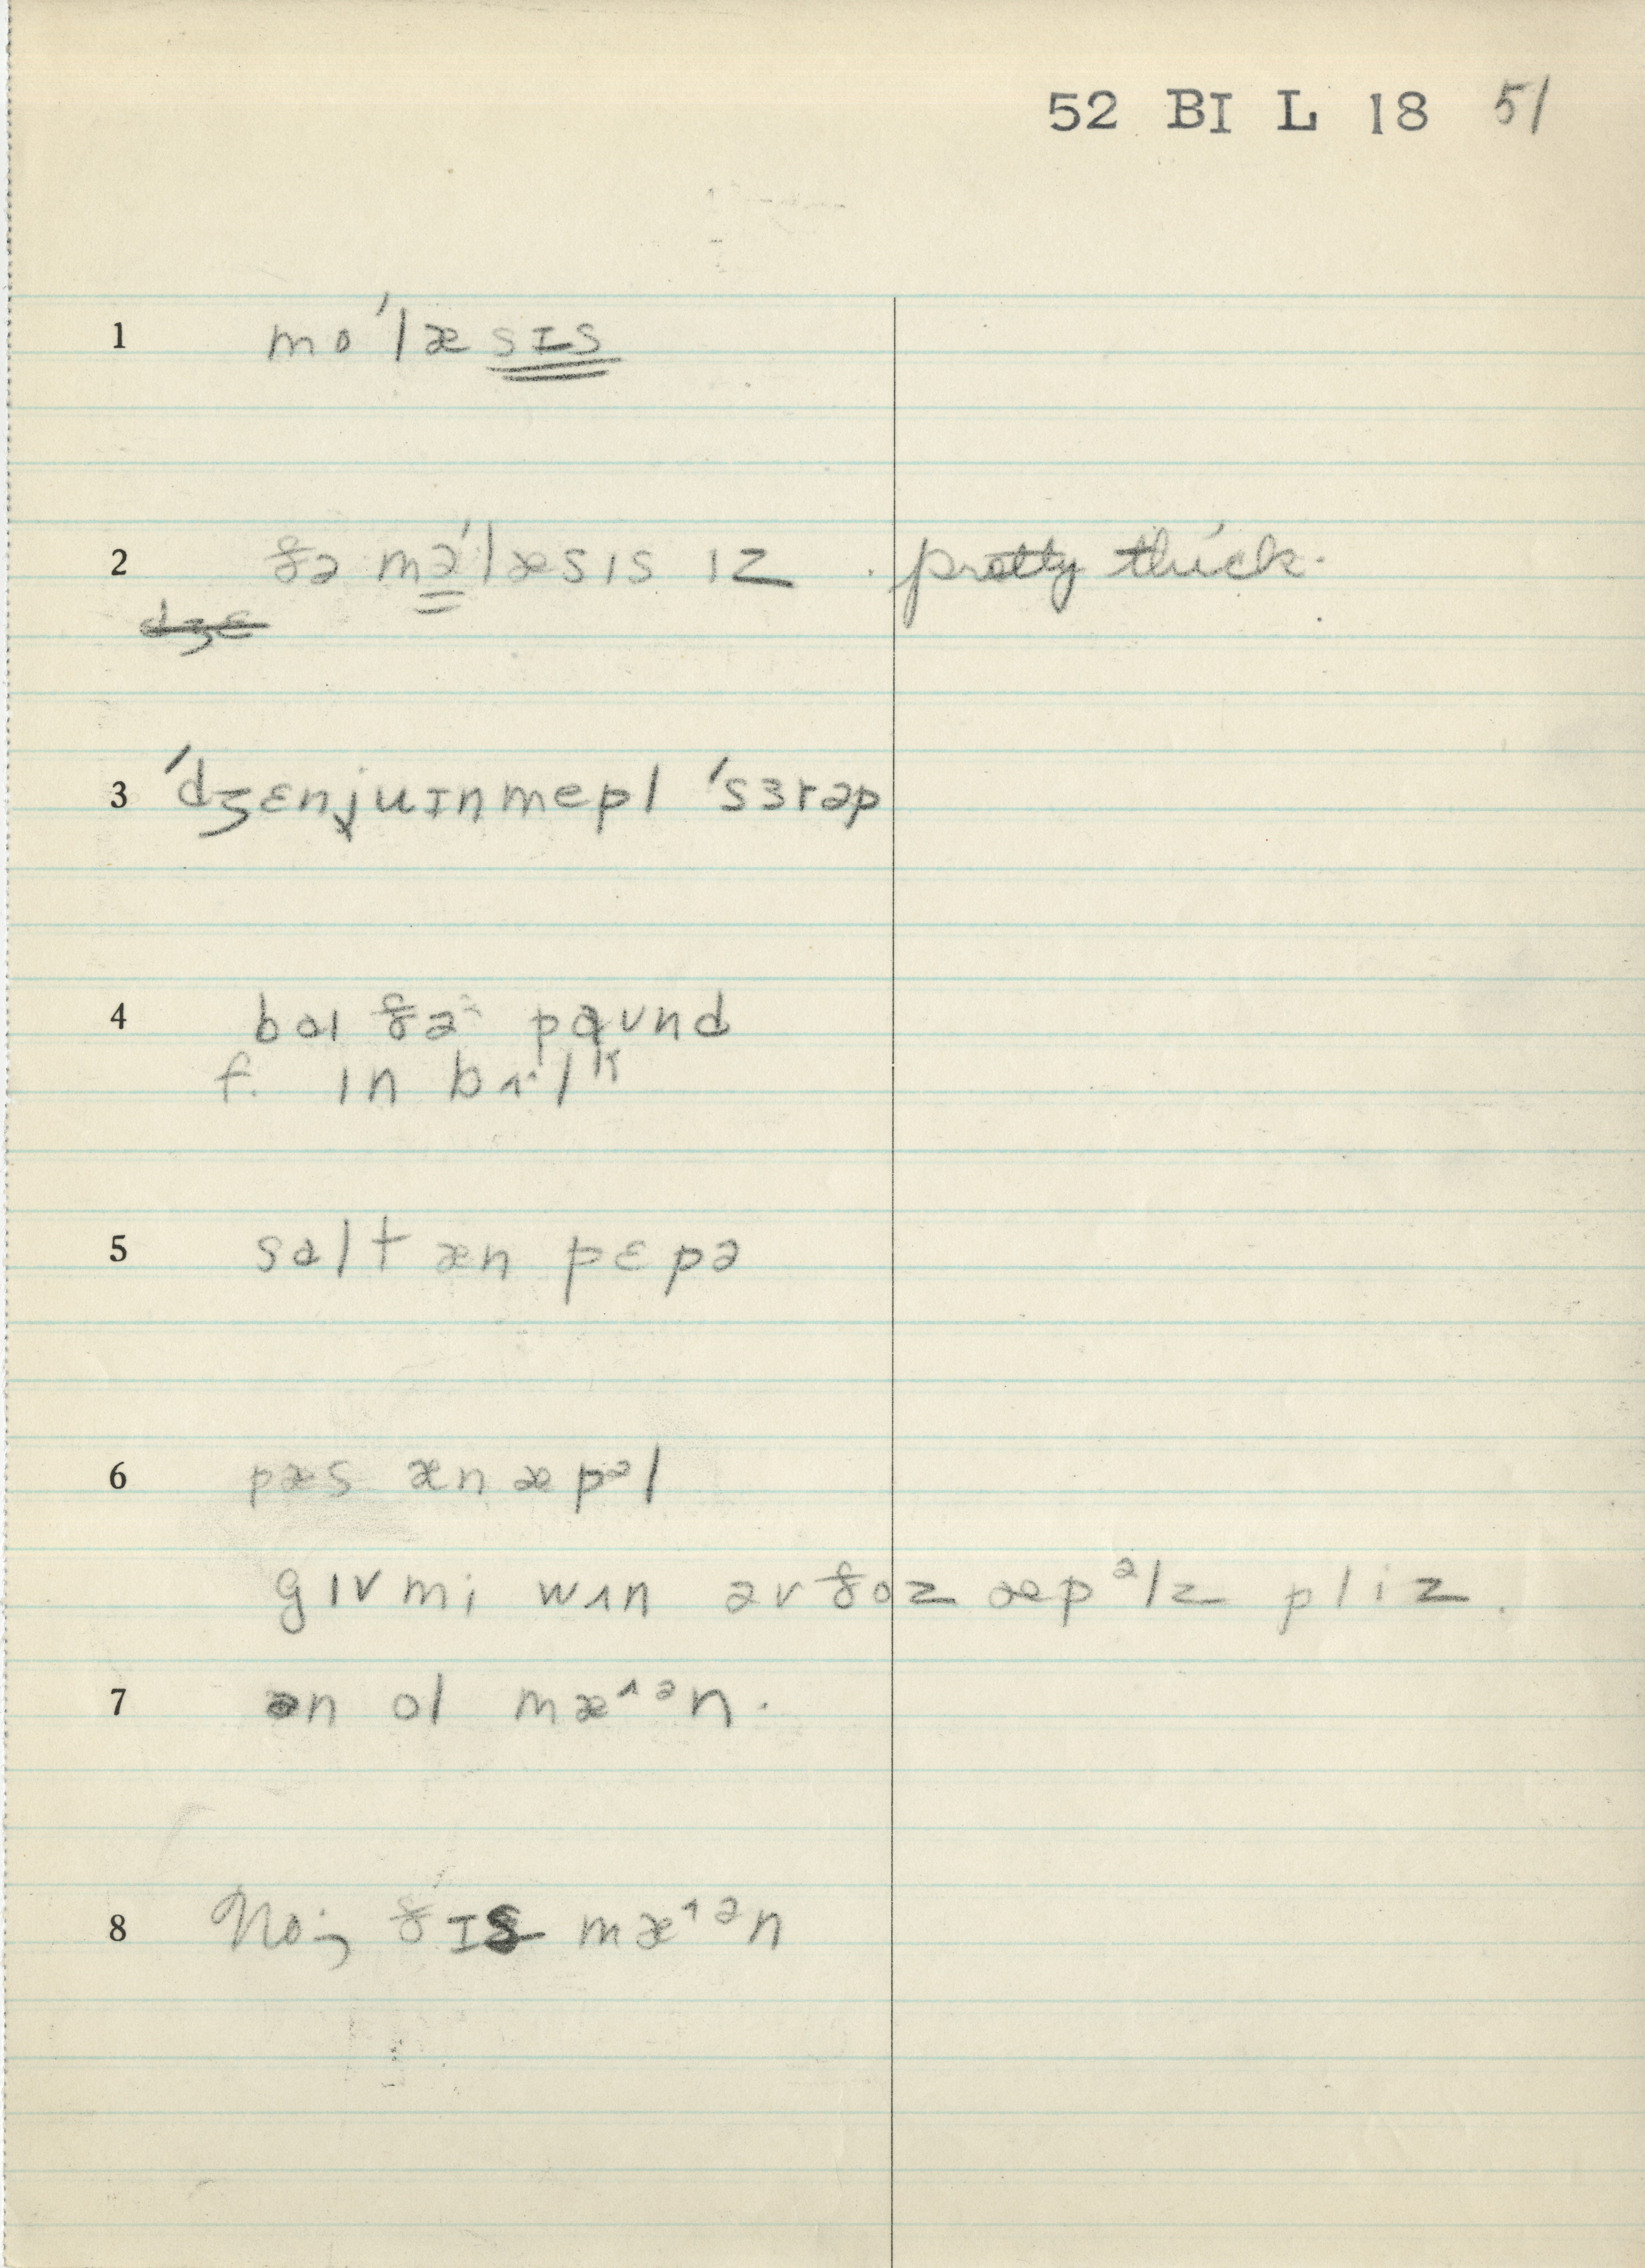 52 BI L 18 51
1 mo'læsɪs
2 ðə mə'læsɪs ɪz . pretty thick.
dʒɛ
3 'dʒɛnjuɪnmepl 'sɜrəp
4 baɪ ðə^ paʊnd
f. ɪn bʌ^lᴷ
5 salt æn pɛpə
6 pæs æn æpᵊl
gɪv mi wʌn əv ðoz æpᵊlz pliz.
7 ən ol mæ^ᵊn.
8 No; ðɪs mæ^ᵊn